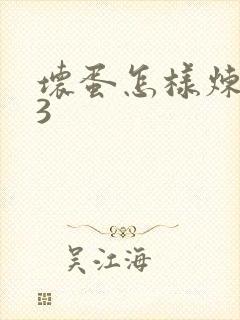 壞蛋怎樣煉
3
吴江海